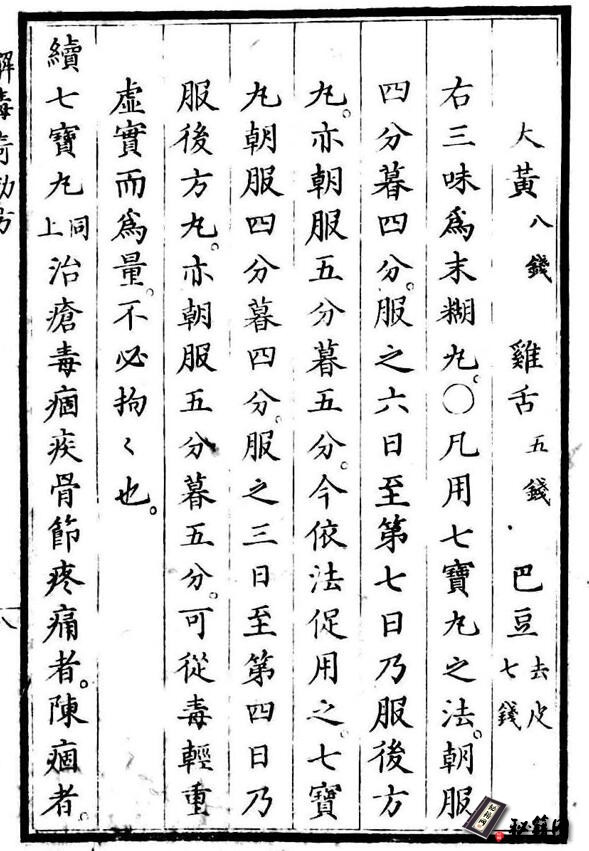 大黃八錢 雞舌五錢 巴豆去皮七錢
右三味爲末糊丸。〇凡用七寶丸之法。朝服
四分暮四分。服之六日至第七日乃服後方
丸。亦朝服五分暮五分。今依法促用之。七寶
丸朝服四分暮四分。服之三日至第四日乃
服後方丸。亦朝服五分暮五分。可從毒輕重
虛實而爲量。不必拘〻也。
續七寶丸同上治瘡毒痼疾骨節疼痛者。陳痼者。
解毒奇効方
秘籍网